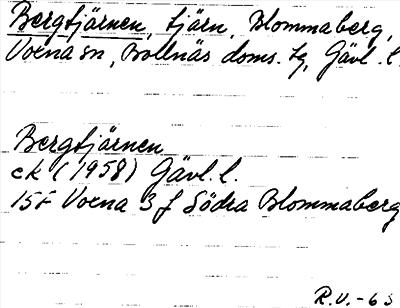 Bergtjärnen, tjärn, Blommaberg,
Voxna sn, Bollnäs doms. tg, Gävl. l.
Bergtjärnen
ek (1958) Gävl. l.
15F Voxna 3 f Södra Blommaberg
R.V. -65